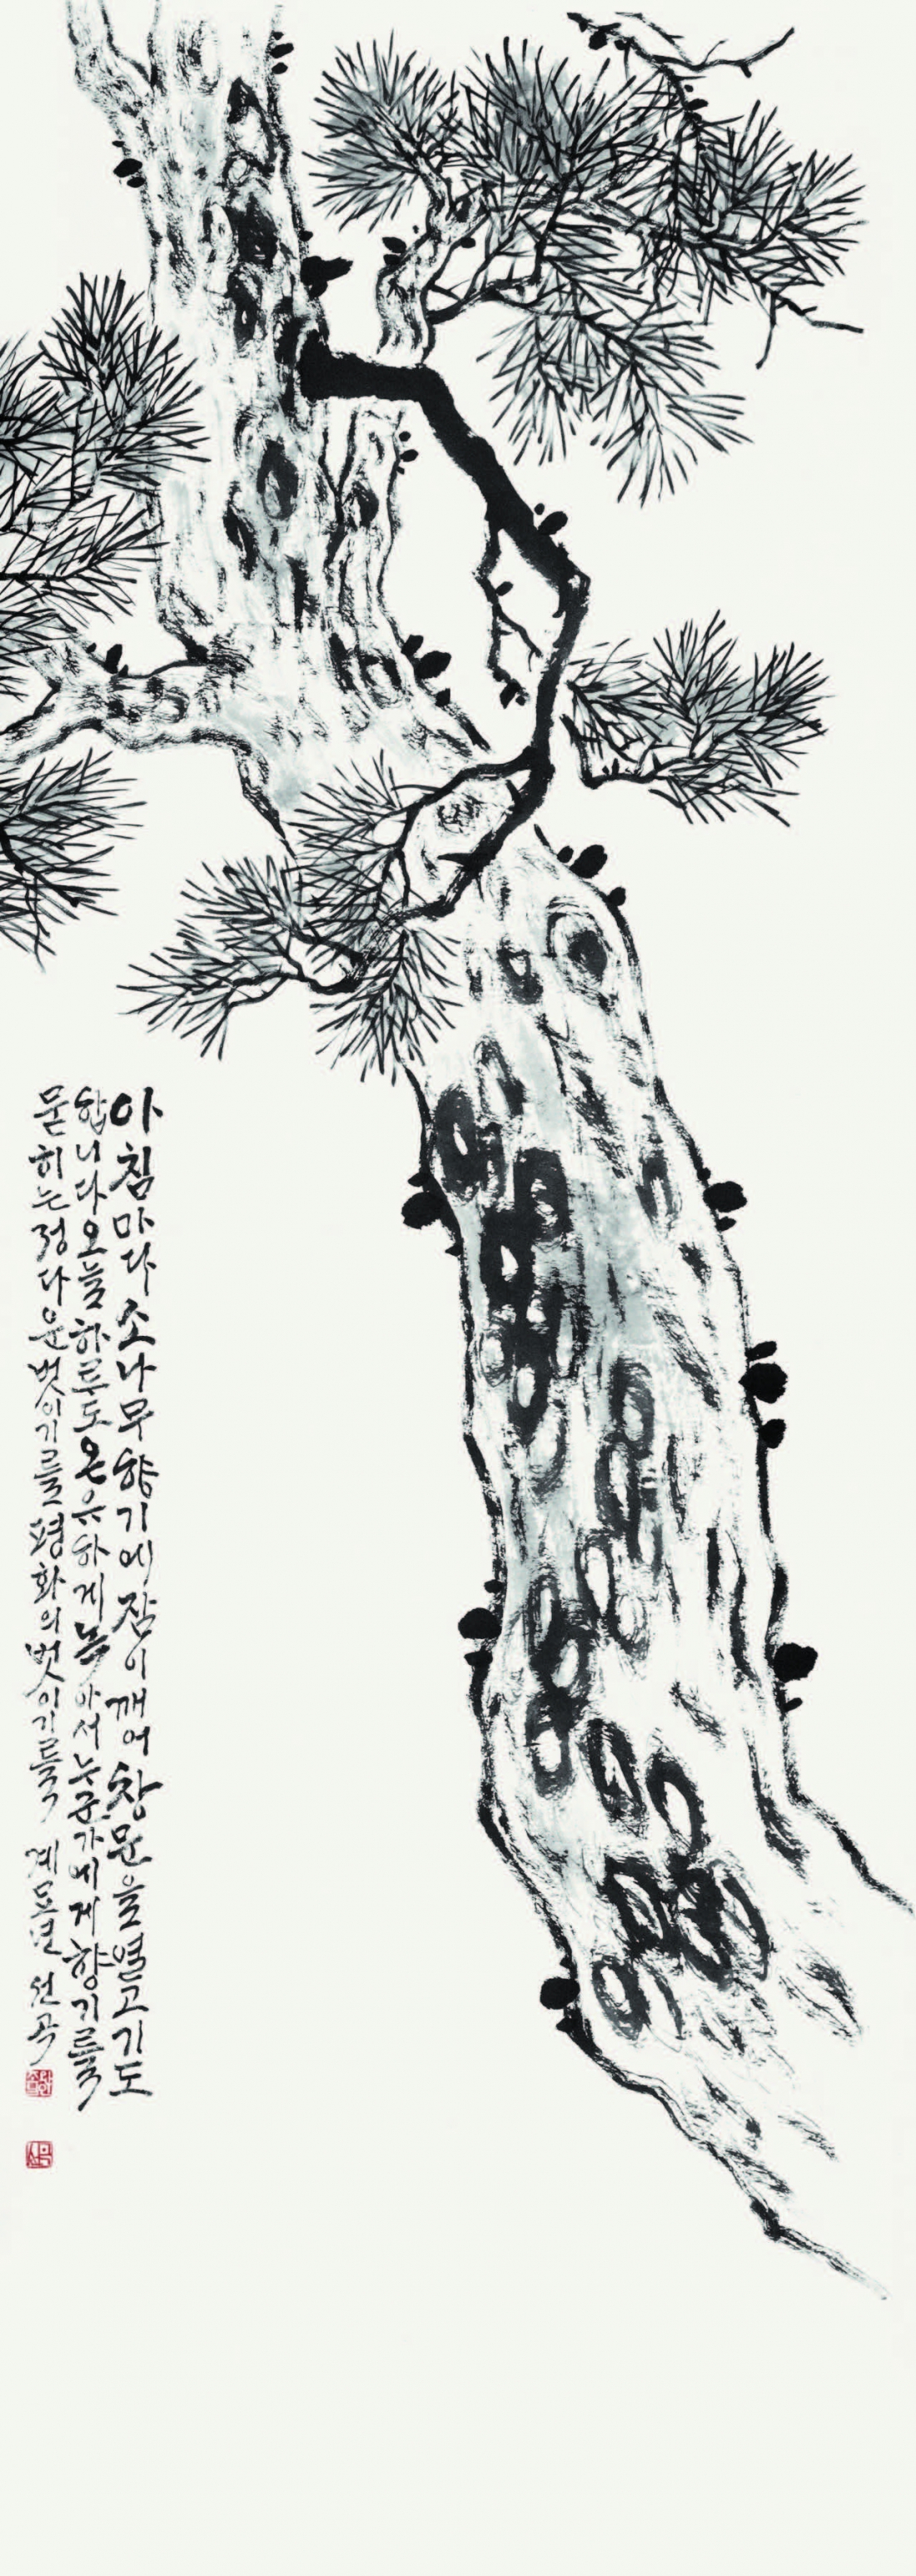 아침마다소나무향기에잠이깨여창문을열고기도
합니다오늘하루도온유하게녹아서누군가에게향기를
묻히는정다운벗이기를평화의벗이기를 계묘년 선곡